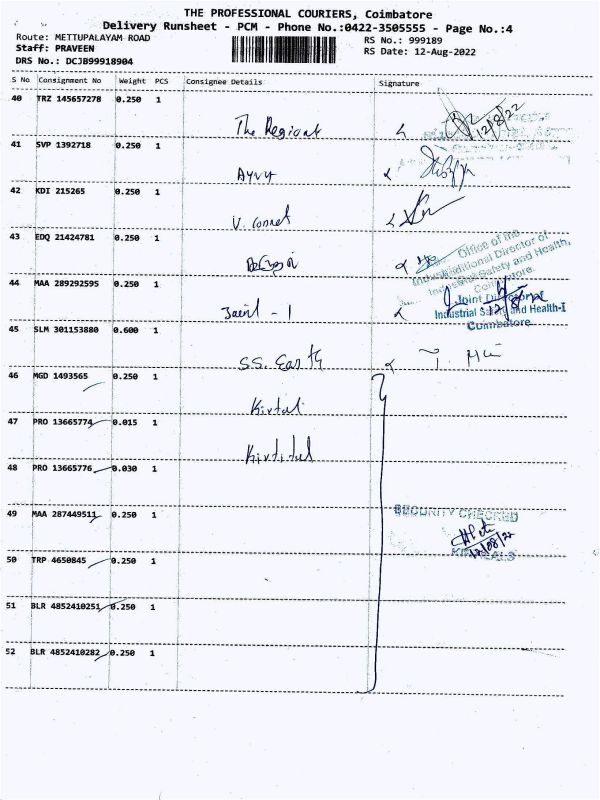 THE PROFESSIONAL COURIERS, Coimbatore
Delivery Runsheet - PCM - Phone No.:0422-3505555 - Page No.:4
Route: METTUPALAYAM ROAD
RS No.: 999189
Staff: PRAVEEN
RS Date: 12-Aug-2022
DRS No.: DCJB99918904
S No Consignment No Weight PCS Consignee Details Signature
40 TRZ 145657278 0.250 1
The Regional
12/8/22
41 SVP 1392718 0.250 1
42 KDI 215265 0.250 1
V. Connet
43 EDQ 21424781 0.250 1
Office of the
Additional Director of
Industrial Safety and Health,
Coimbatore.
44 MAA 289292595 0.250 1
Joint - 1
Joint Director
Industrial Safety and Health-I
Coimbatore
45 SLM 301153880 0.600 1
S.S. Earth
46 MGD 1493565 0.250 1
Kirtal
47 PRO 13665774 0.015 1
Kirtilal
48 PRO 13665776 0.030 1
49 MAA 287449511 0.250 1
SECURITY CHECKED
12/08/22
50 TRP 4650845 0.250 1
51 BLR 4852410251 0.250 1
52 BLR 4852410282 0.250 1